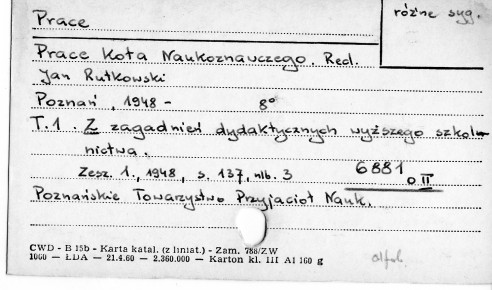 Prace
różne syg.
Prace Koła Naukoznawczego. Red.
Jan Rutkowski
Poznań, 1948 - 8°
T.1. Z zagadnień dydaktycznych wyższego szkol-
nictwa.
Zesz. 1., 1948, s. 137, nlb. 3
6881
o II
Poznańskie Towarzystwo Przyjaciół Nauk.
CWD - B 15b - Karta katal. (z liniat.) - Zam. 788/ZW
1060 — ŁDA — 21.4.60 - 2.360.000 — Karton kl. III A1 160 g
alfab.